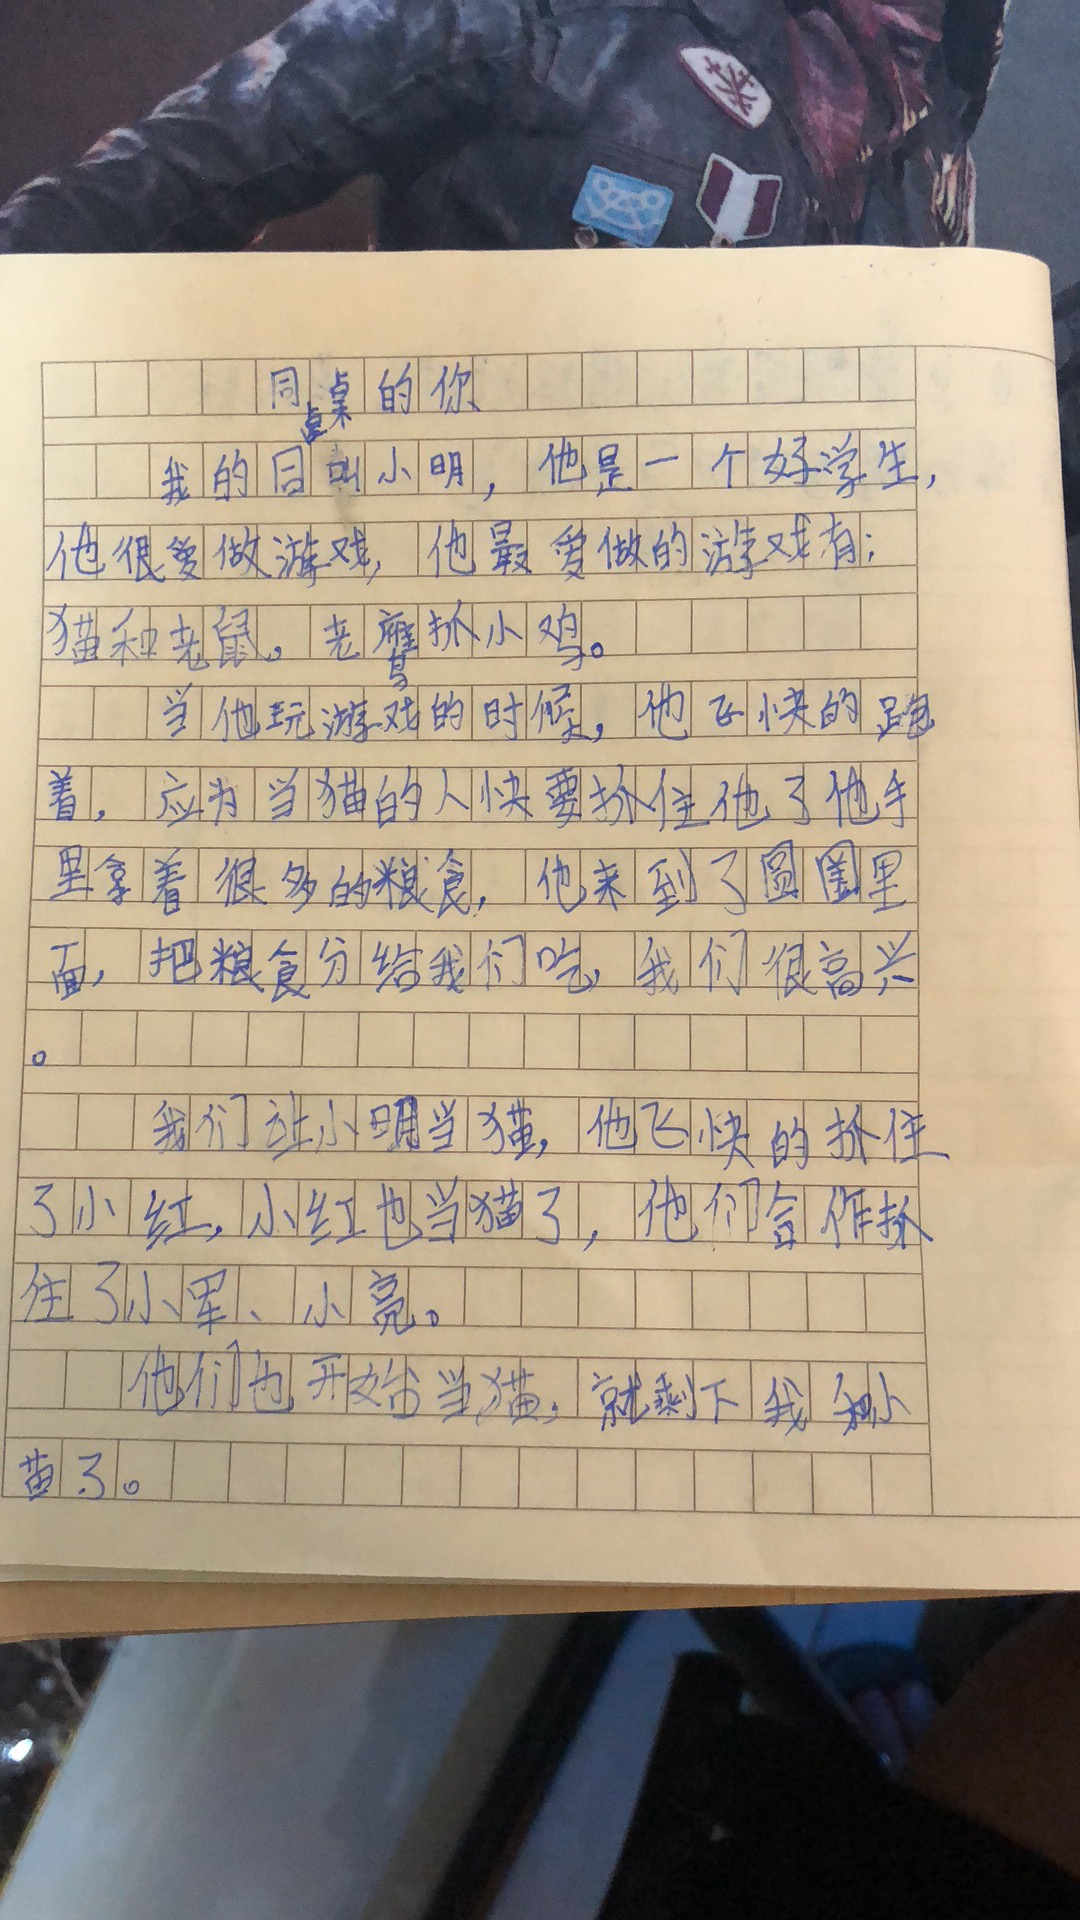 同桌的你
我的同桌叫小明，他是一个好学生，
他很爱做游戏，他最爱做的游戏有：
猫和老鼠。老鹰抓小鸡。
当他玩游戏的时候，他飞快的跑
着，应为当猫的人快要抓住他了他手
里拿着很多的粮食，他来到了圆圈里
面，把粮食分给我们吃，我们很高兴
。
我们让小明当猫，他飞快的抓住
了小红，小红也当猫了，他们合作抓
住了小军、小亮。
他们也开始当猫，就剩下我和小
苗了。